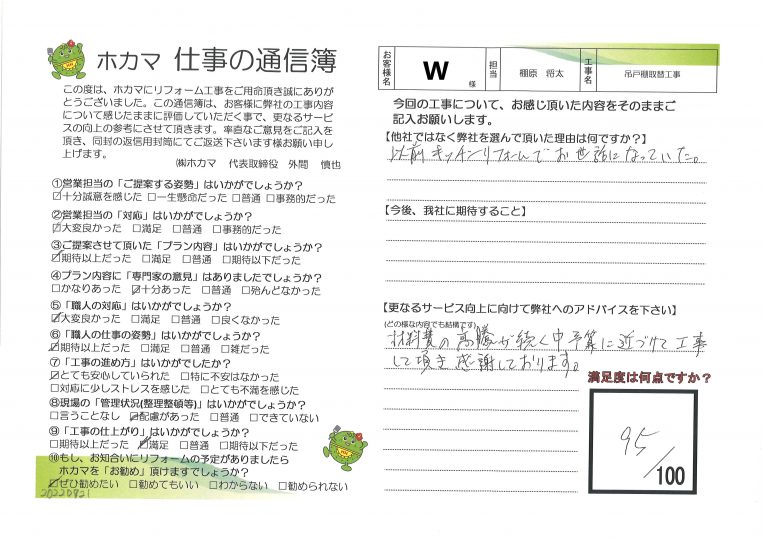 ホカマ 仕事の通信簿
この度は、ホカマにリフォーム工事をご用命頂き誠にありが
とうございました。この通信簿は、お客様に弊社の工事内容
について感じたままに評価していただく事で、更なるサービ
スの向上の参考にさせて頂きます。率直なご意見をご記入を
頂き、同封の返信用封筒にてご返送下さいます様お願い申し
上げます。
㈱ホカマ 代表取締役 外間 慎也
①営業担当の「ご提案する姿勢」はいかがでしょうか?
☑十分誠意を感じた □一生懸命だった □普通 □事務的だった
②営業担当の「対応」はいかがでしょうか?
☑大変良かった □満足 □普通 □事務的だった
③ご提案させて頂いた「プラン内容」はいかがでしょうか?
☑期待以上だった □満足 □普通 □期待以下だった
④プラン内容に「専門家の意見」はありましたでしょうか?
□かなりあった ☑十分あった □普通 □殆んどなかった
⑤「職人の対応」はいかがでしょうか?
☑大変良かった □満足 □普通 □良くなかった
⑥「職人の仕事の姿勢」はいかがでしょうか?
☑期待以上だった □満足 □普通 □雑だった
⑦「工事の進め方」はいかがでしたか?
☑とても安心していられた □特に不安はなかった
□対応に少しストレスを感じた □とても不満を感じた
⑧現場の「管理状況(整理整頓等)」はいかがでしょうか?
□言うことなし ☑配慮があった □普通 □できていない
⑨「工事の仕上がり」はいかがでしょうか?
□期待以上だった ☑満足 □普通 □期待以下だった
⑩もし、お知合いにリフォームの予定がありましたら
ホカマを「お勧め」頂けますでしょうか?
☑ぜひ勧めたい □勧めてもいい □わからない □勧められない
20220921
お客様名 W 様 担当 棚原 将太 工事名 吊戸棚取替工事
今回の工事について、お感じ頂いた内容をそのままご
記入お願いします。
【他社ではなく弊社を選んで頂いた理由は何ですか?】
以前キッチンリフォームでお世話になっていた。
【今後、我社に期待すること】
【更なるサービス向上に向けて弊社へのアドバイスを下さい】
(どの様な内容でも結構です)
材料費の高騰が続く中予算に近づけて工事
して頂き感謝しております。
満足度は何点ですか?
95
/100